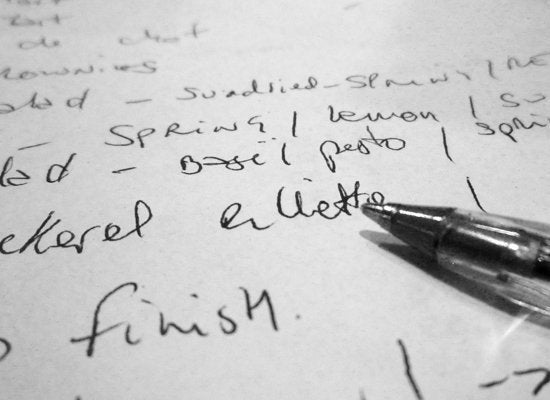 de
ownies
lad - Sundried - Spring /
- SPRING / lemon / Su
lad - Basil pesto / sprin
ckerel rillette /
finish.